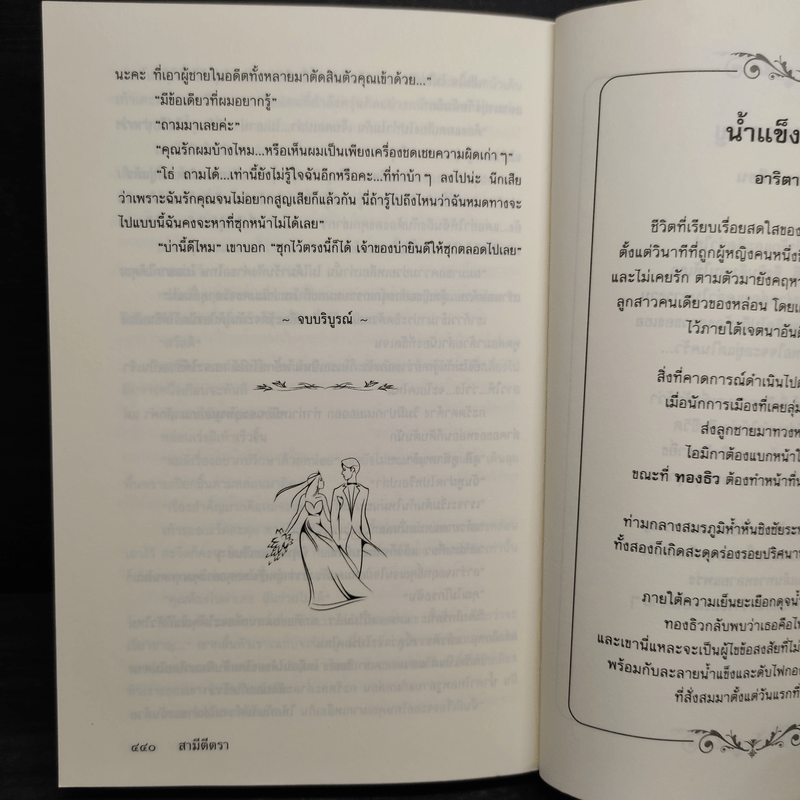 นะคะ ที่เอาผู้ชายในอดีตทั้งหลายมาตัดสินตัวคุณเข้าด้วย..."
"มีข้อเดียวที่ผมอยากรู้"
"ถามมาเลยค่ะ"
"คุณรักผมบ้างไหม...หรือเห็นผมเป็นเพียงเครื่องชดเชยความผิดเก่าๆ"
"โธ่ ถามได้...เท่านี้ยังไม่รู้ใจฉันอีกหรือคะ...ที่ทำบ้าๆ ลงไปน่ะ นึกเสีย
ว่าเพราะฉันรักคุณจนไม่อยากสูญเสียก็แล้วกัน นี่ถ้ารู้ไปถึงไหนว่าฉันหมดทางจะ
ไปแบบนี้ฉันคงจะหาที่ซุกหน้าไม่ได้เลย"
"บ่านี้ดีไหม" เขาบอก "ซุกไว้ตรงนี้ก็ได้ เจ้าของบ่ายินดีให้ซุกตลอดไปเลย"
~ จบบริบูรณ์ ~
๔๔๐ สามีตีตรา
น้ำแข็ง
อาริตา
ชีวิตที่เรียบเรื่อยสดใสของ
ตั้งแต่วินาทีที่ถูกผู้หญิงคนหนึ่ง
และไม่เคยรัก ตามตัวมายังคฤห
ลูกสาวคนเดียวของหล่อน โดย
ไว้ภายใต้เจตนาอัน
สิ่งที่คาดการณ์ดำเนินไป
เมื่อนักการเมืองที่เคยลุ่ม
ส่งลูกชายมาทวงห
ไอมิกาต้องแบกหน้า
ขณะที่ ทองธิว ต้องทำหน้าที่
ท่ามกลางสมรภูมิห้ำหั่นชิงชัยระห
ทั้งสองก็เกิดสะดุดร่องรอยปริศนา
ภายใต้ความเย็นยะเยือกดุจน้
ทองธิวกลับพบว่าเธอคือ
และเขานี่แหละจะเป็นผู้ไขข้อสงสัยที่ไม่
พร้อมกับละลายน้ำแข็งและดับไฟกอง
ที่สั่งสมมาตั้งแต่วันแรกที่